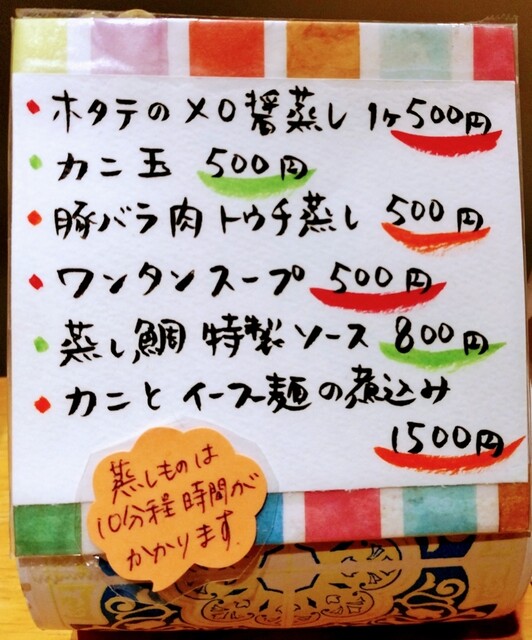 ホタテのXO醤蒸し 1ヶ500円
カニ玉 500円
豚バラ肉トウチ蒸し 500円
ワンタンスープ 500円
蒸し鯛 特製ソース 800円
カニとイーフー麺の煮込み
1500円
蒸しものは
10分程時間が
かかります。